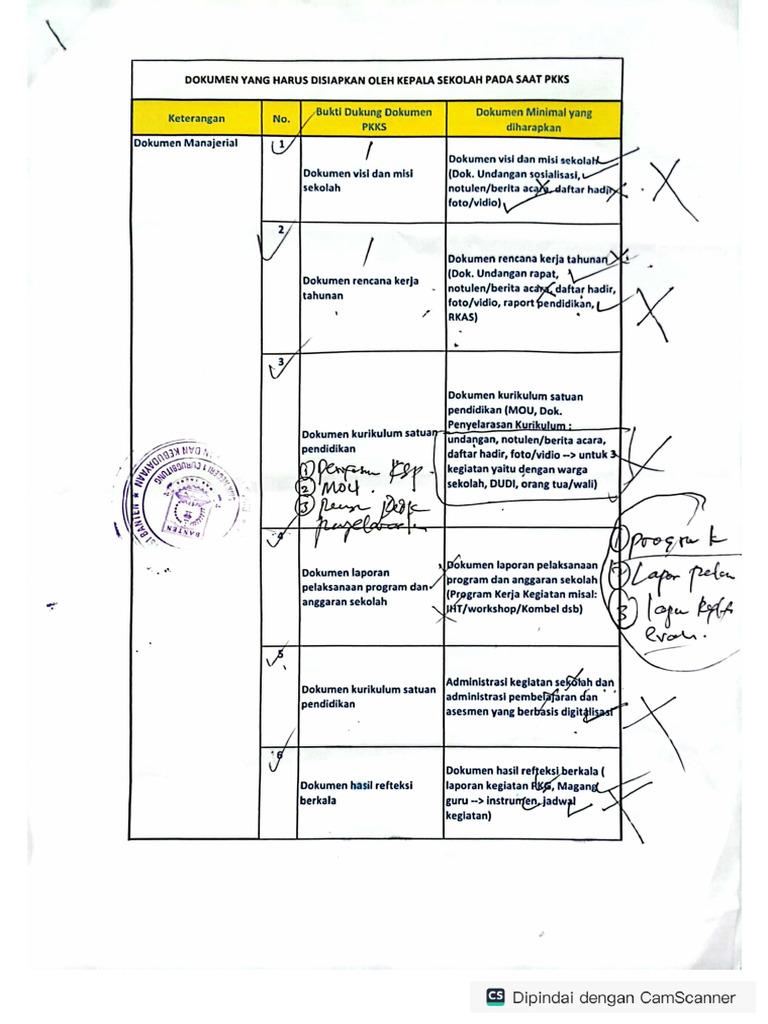 DOKUMEN YANG HARUS DISIAPKAN OLEH KEPALA SEKOLAH PADA SAAT PKKS
Keterangan
No.
Bukti Dukung Dokumen
PKKS
Dokumen Minimal yang
diharapkan
Dokumen Manajerial
1
Dokumen visi dan misi
sekolah
Dokumen visi dan misi sekolah
(Dok. Undangan sosialisasi,
notulen/berita acara, daftar hadir,
foto/vidio)
2
Dokumen rencana kerja
tahunan
Dokumen rencana kerja tahunan
(Dok. Undangan rapat,
notulen/berita acara, daftar hadir,
foto/vidio, raport pendidikan,
RKAS)
3
Dokumen kurikulum satuan
pendidikan
1
2 MOU
3
Dokumen kurikulum satuan
pendidikan (MOU, Dok.
Penyelarasan Kurikulum :
undangan, notulen/berita acara,
daftar hadir, foto/vidio --> untuk 3
kegiatan yaitu dengan warga
sekolah, DUDI, orang tua/wali)
4
Dokumen laporan
pelaksanaan program dan
anggaran sekolah
Dokumen laporan pelaksanaan
program dan anggaran sekolah
(Program Kerja Kegiatan misal:
IHT/workshop/Kombel dsb)
1 program k
2 Lapor
3
5
Dokumen kurikulum satuan
pendidikan
Administrasi kegiatan sekolah dan
administrasi pembelajaran dan
asesmen yang berbasis digitalisasi
6
Dokumen hasil refteksi
berkala
Dokumen hasil refteksi berkala (
laporan kegiatan PKG, Magang
guru --> instrumen, jadwal
kegiatan)
BANTEN
CS Dipindai dengan CamScanner